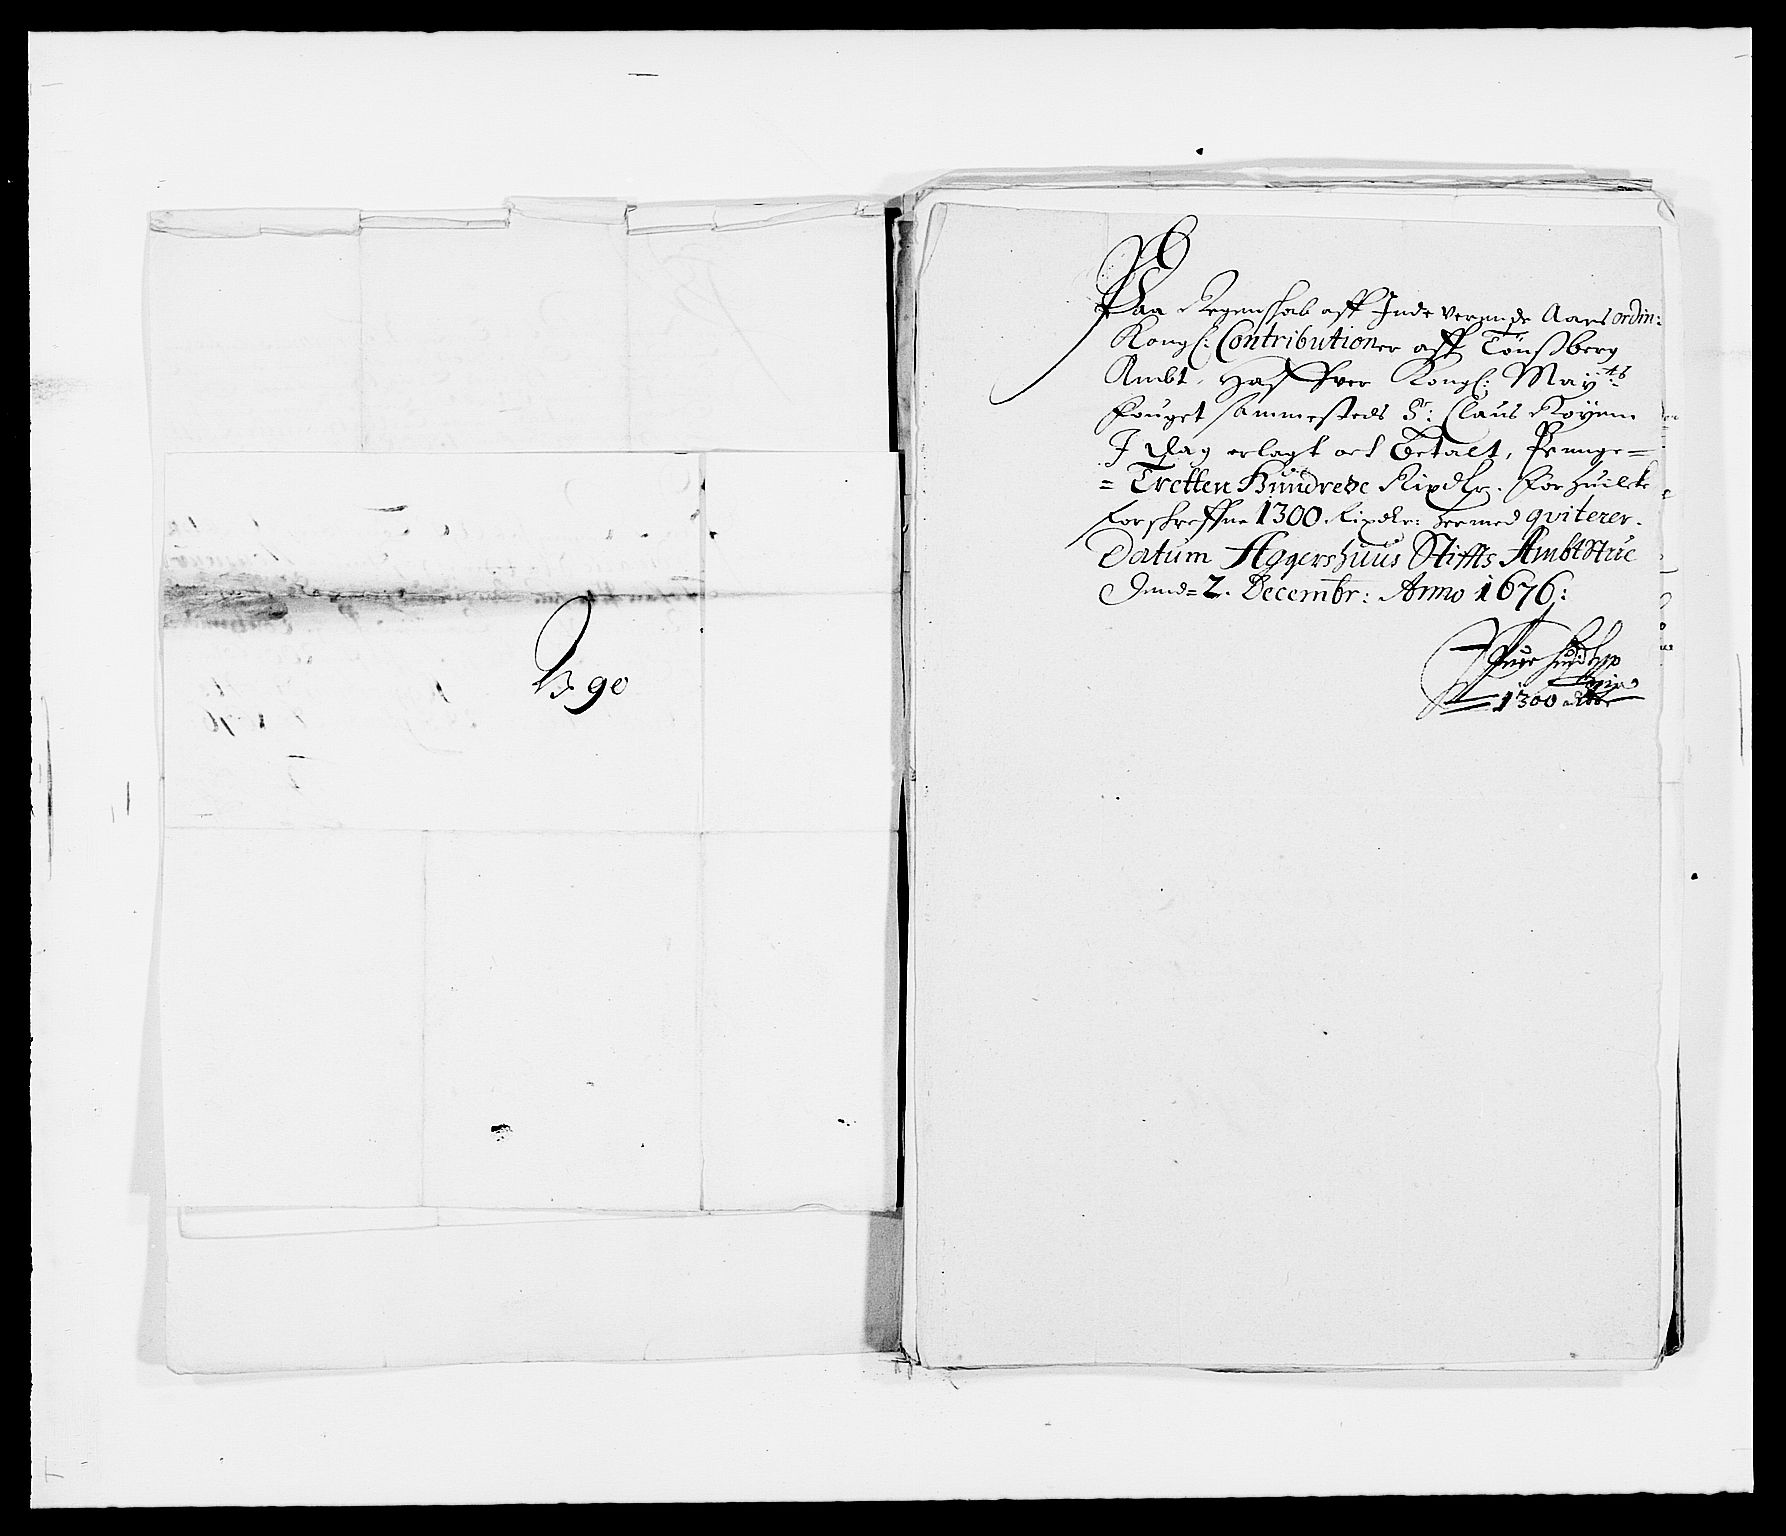 N 90
Paa Regenskab aff Inde verende Aars ordin:
Kongl: Contributioner aff Tønsberg
Ambt, Haffver Kongl: May:ts
Fouget sammesteds Sr: Claus Røyem
I dag erlagt och Betalt, Penge=
= Tretten Hundrede Rixdlr. for huilcke
forskreffne 1300 Rixdlr: hermed qviterer.
Datum Agershuus Stiffts AmbtStue
dend= 2. Decembr: Anno 1676:
1300